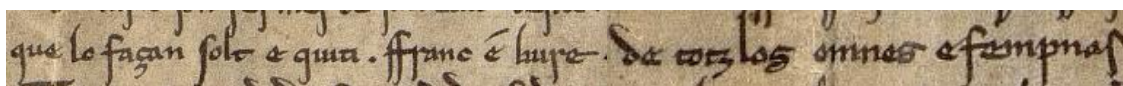 que lo façan solt e quiti . ffranc ē liure . de totz los omnes e fempnas